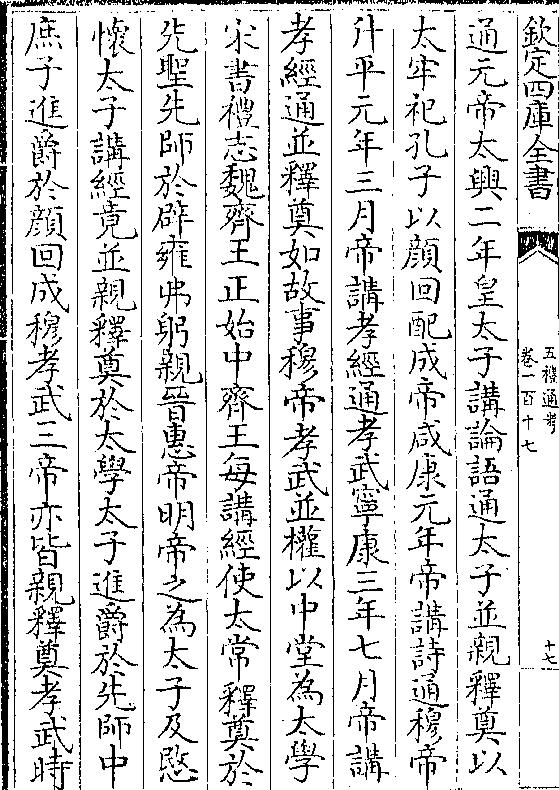 欽定四庫全書
五禮通考
卷一百十七
十七
通元帝太興二年皇太子講論語通太子並親釋奠以
太牢祀孔子以顔回配成帝咸康元年帝講詩通穆帝
升平元年三月帝講孝經通孝武寧康三年七月帝講
孝經通並釋奠如故事穆帝孝武並權以中堂為太學
宋書禮志魏齊王正始中齊王每講經使太常釋奠於
先聖先師於辟雍弗躬親晉惠帝明帝之為太子及愍
懷太子講經竟並親釋奠於太學太子進爵於先師中
庶子進爵於顔回成穆孝武三帝亦皆親釋奠孝武時